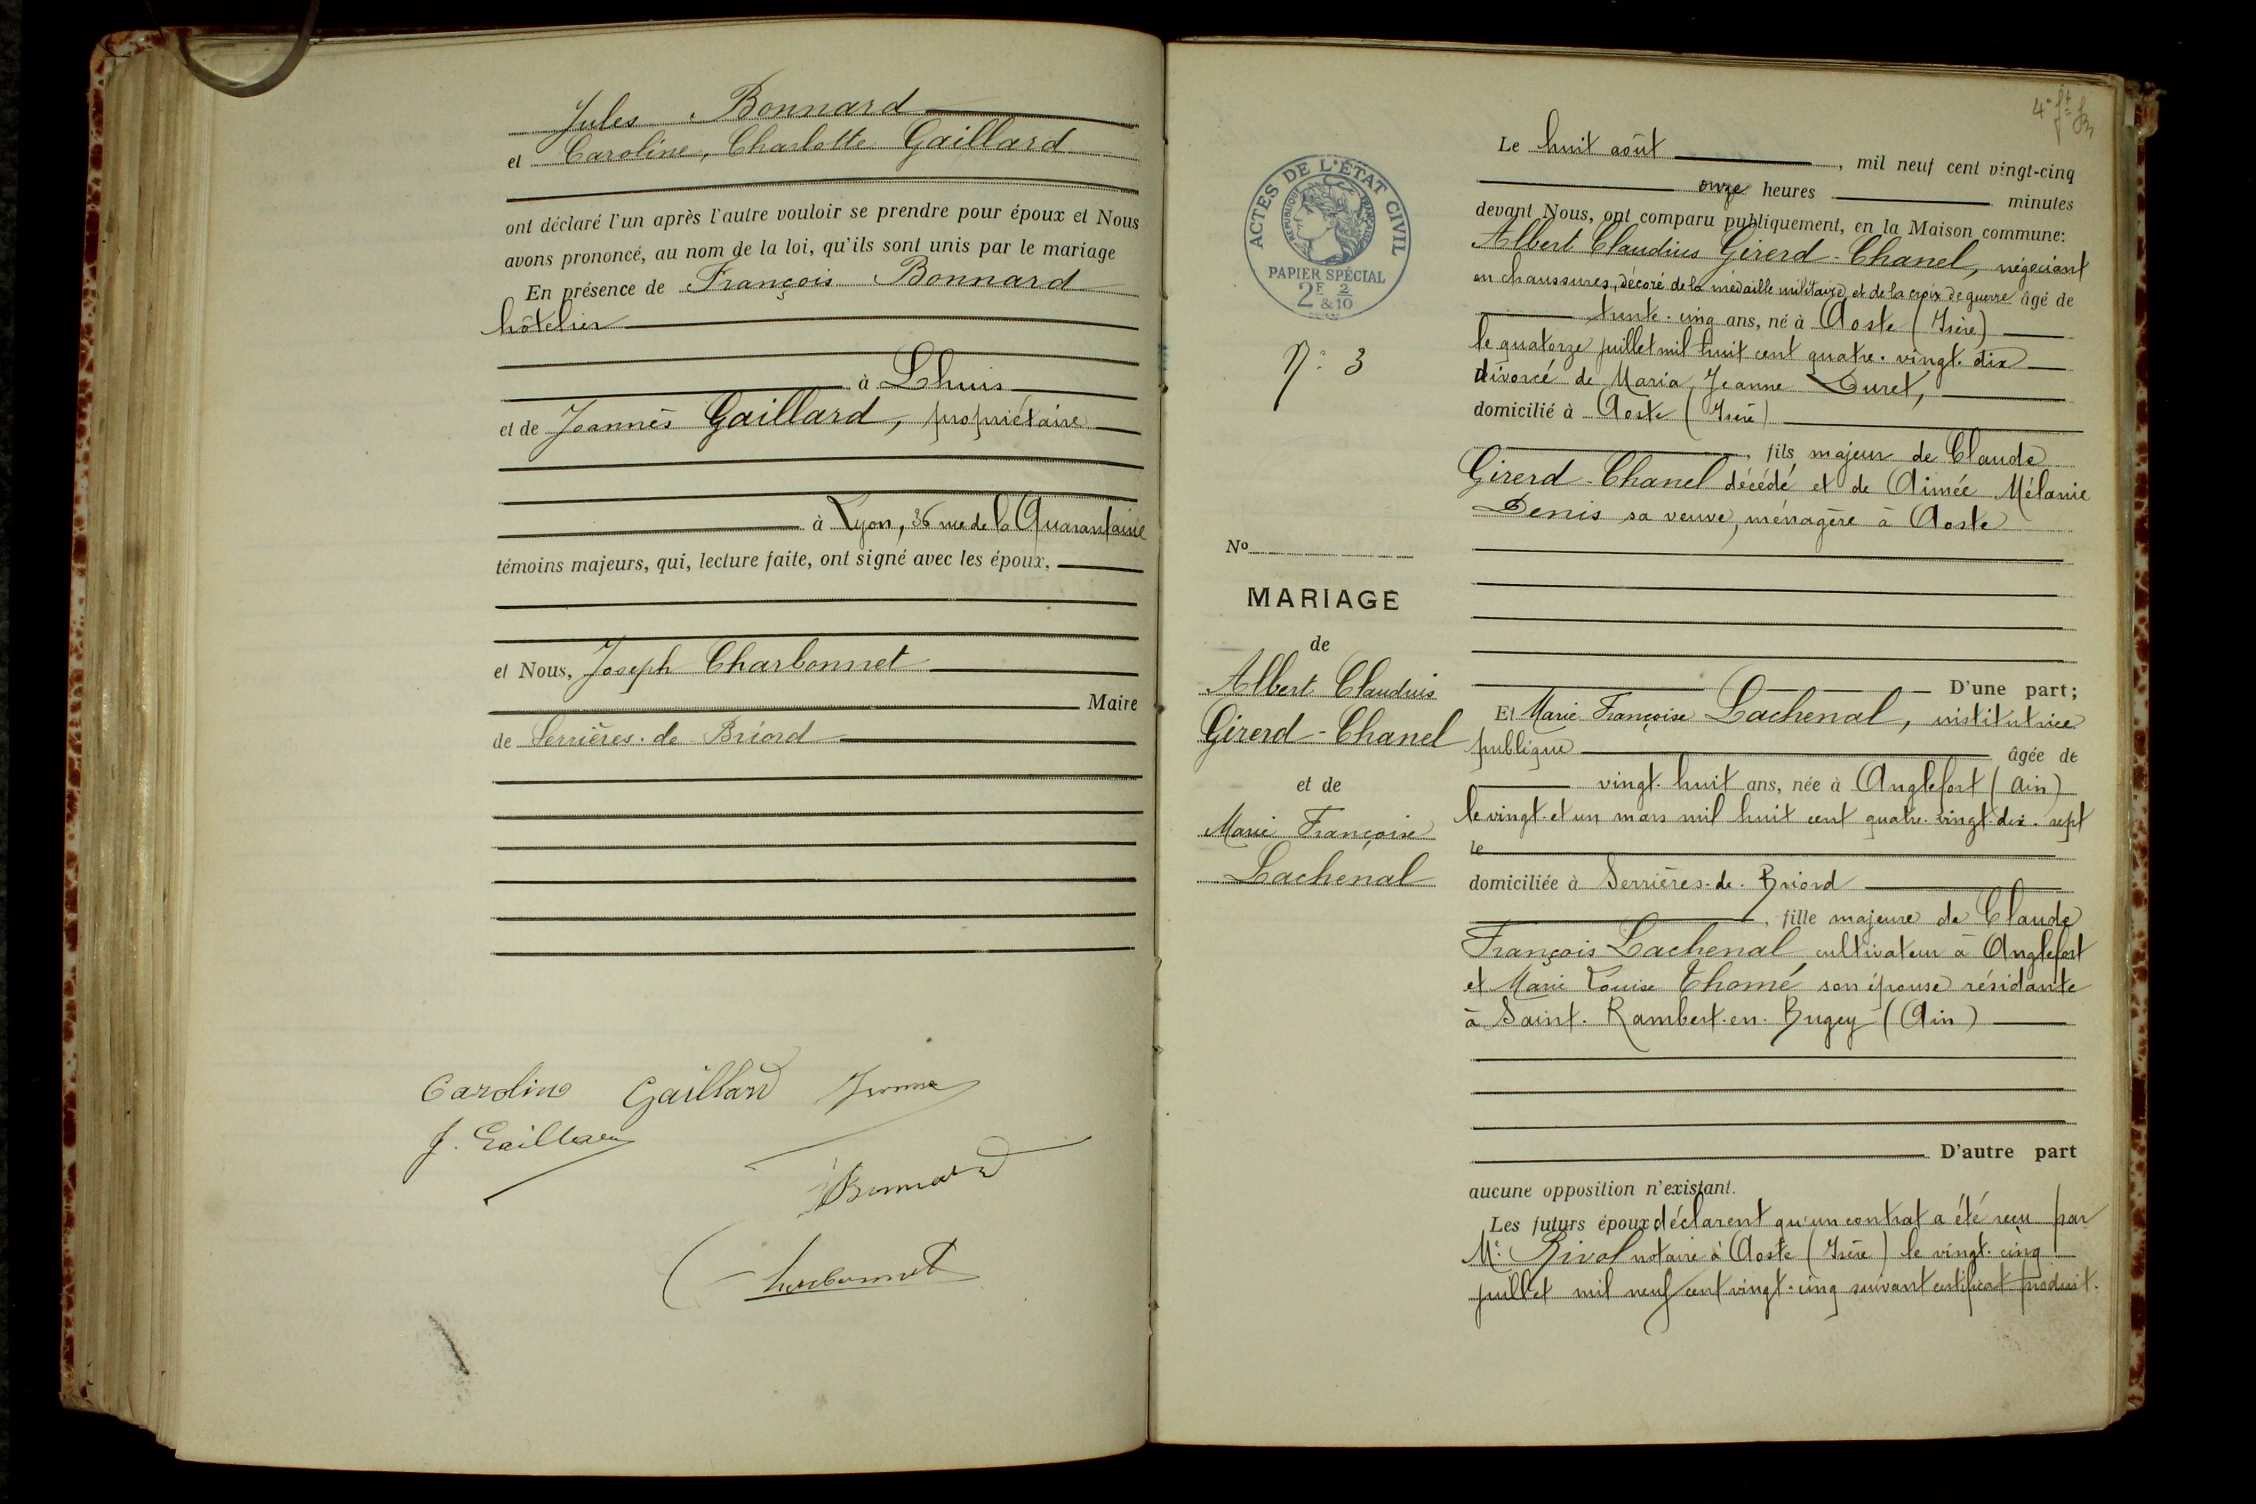 Jules Bonnard
et Caroline, Charlotte Gaillard
ont déclaré l'un après l'autre vouloir se prendre pour époux et Nous
avons prononcé, au nom de la loi, qu'ils sont unis par le mariage
En présence de François Bonnard
hôtelier
à Lhuis
et de Joannès Gaillard, propriétaire
à Lyon, 36 rue de la Quarantaine
témoins majeurs, qui, lecture faite, ont signé avec les époux,
et Nous, Joseph Charbonnet
Maire
de Serrières-de-Briord
Caroline Gaillard
J. Gaillard
Bonnard
Charbonnet
ACTES DE L'ÉTAT CIVIL
RÉPUBLIQUE FRANÇAISE
PAPIER SPÉCIAL
2F & 2/10
N° 3
N°
MARIAGE
de
Albert Claudius
Girerd-Chanel
et de
Marie Françoise
Lachenal
Le huit août, mil neuf cent vingt-cinq
onze heures minutes
devant Nous, ont comparu publiquement, en la Maison commune:
Albert Claudius Girerd-Chanel, négociant
en chaussures, décoré de la médaille militaire et de la croix de guerre âgé de
trente-cinq ans, né à Aoste (Isère)
le quatorze juillet mil huit cent quatre-vingt-dix
divorcé de Maria Jeanne Duret,
domicilié à Aoste (Isère)
, fils majeur de Claude
Girerd-Chanel décédé et de Aimée Mélanie
Denis sa veuve, ménagère à Aoste
D'une part;
Et Marie Françoise Lachenal, institutrice
publique âgée de
vingt-huit ans, née à Anglefort (Ain)
le vingt-et un mars mil huit cent quatre-vingt-dix-sept
le
domiciliée à Serrières-de-Briord
, fille majeure de Claude
François Lachenal cultivateur à Anglefort
et Marie Louise Thomé son épouse résidante
à Saint-Rambert-en-Bugey (Ain)
D'autre part
aucune opposition n'existant.
Les futurs époux déclarent qu'un contrat a été reçu par
Me Rivol notaire à Aoste (Isère) le vingt-cinq
juillet mil neuf cent vingt-cinq suivant certificat produit.